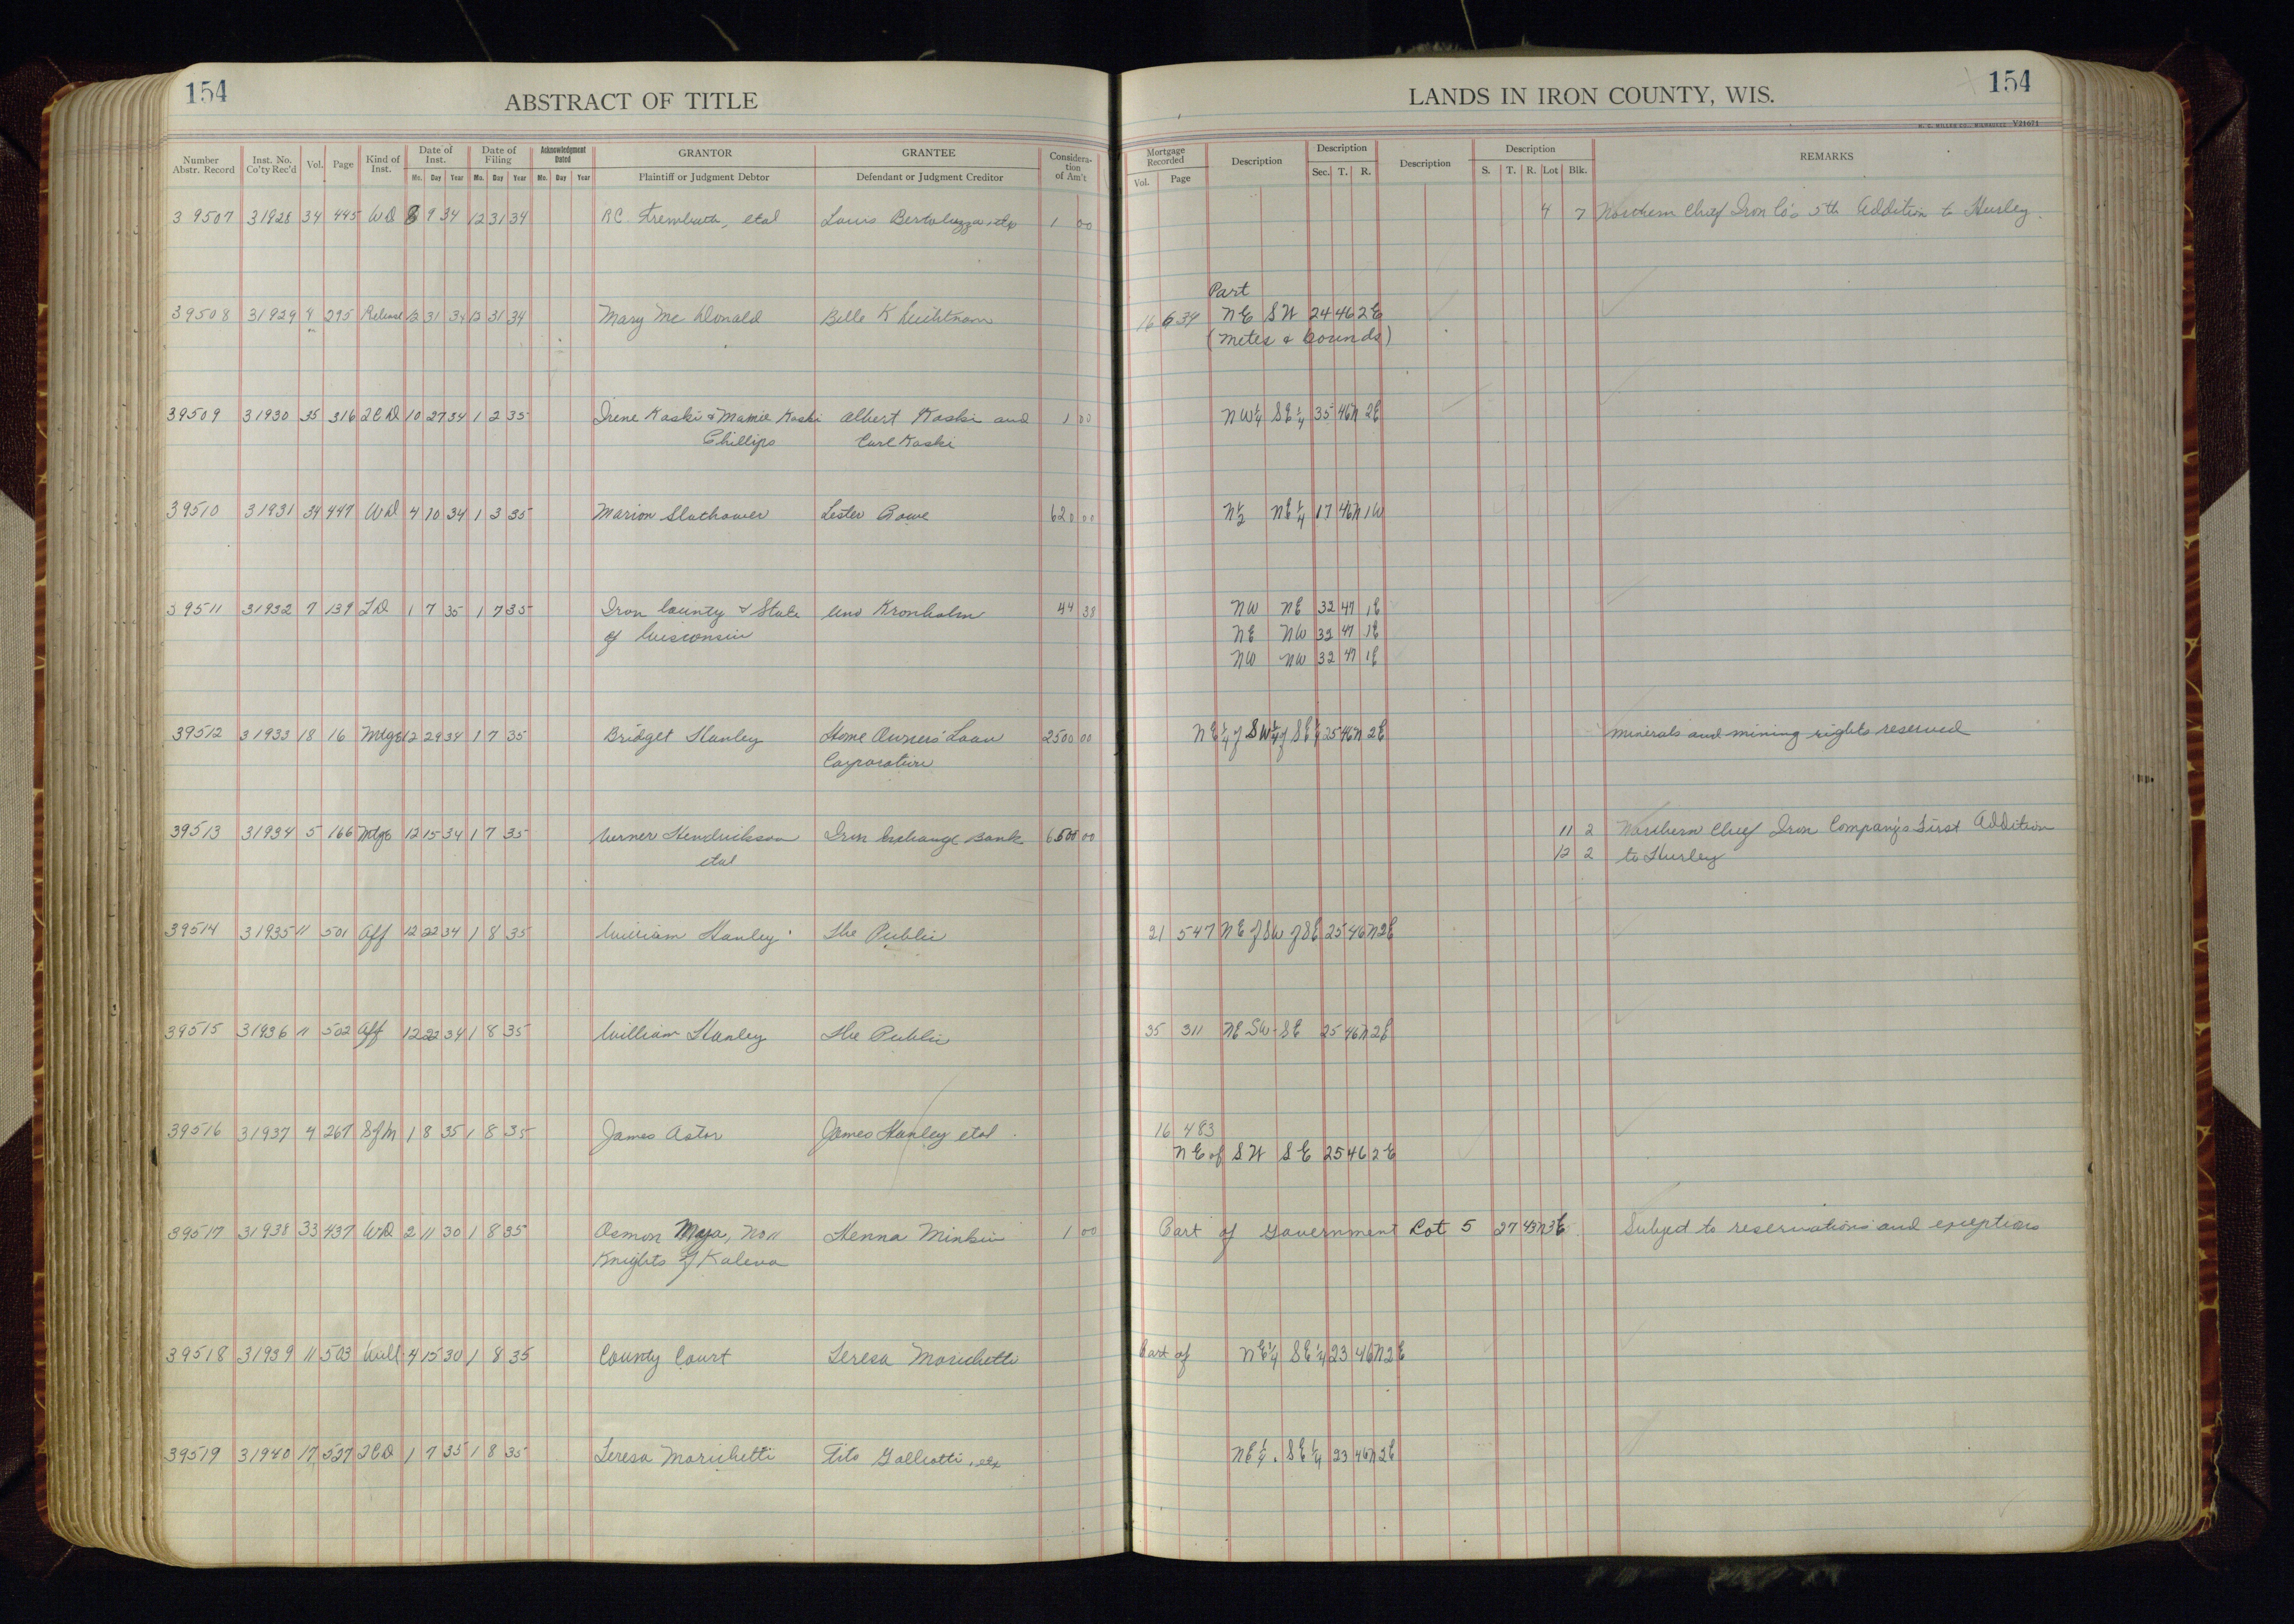 154
ABSTRACT OF TITLE
Number Abstr. Record Inst. No. Co'ty Rec'd Vol. Page Kind of Inst. Date of Inst. Mo. Day Year Date of Filing Mo. Day Year Acknowledgment Dated Mo. Day Year GRANTOR Plaintiff or Judgment Debtor GRANTEE Defendant or Judgment Creditor Consideration of Am't
LANDS IN IRON COUNTY, WIS.
154
H. C. MILLER CO., MILWAUKEE V21671
Mortgage Recorded Vol. Page Description Description Sec. T. R. Description Description S. T. R. Lot Blk. REMARKS
39507 31928 34 445 WD 8 9 34 12 31 34 RC Trembath, etal Louis Bertoluzza, etux 1 00 4 7 Northern Chief Iron Co's 5th Addition to Hurley.
Part
39508 31929 9 295 Release 12 31 34 12 31 34 Mary Mc Donald Belle K 16 634 NE SW 24 46 2E
(metes & bounds)
39509 31930 35 316 QCD 10 27 34 1 2 35 Irene Kaski & Mamie Kaski Albert Kaski and 1 00 NW¼ SE¼ 35 46N 2E
Phillips Carl Kaski
39510 31931 34 447 WD 4 10 34 1 3 35 Marion Slathower Lester Rowe 620 00 N½ NE¼ 17 46N 1W
39511 31932 7 139 TD 1 7 35 1 7 35 Iron County & State Uno Kronholm 44 38 NW NE 32 47 1E
of Wisconsin NE NW 32 47 1E
NW NW 32 47 1E
39512 31933 18 16 Mtge 12 29 34 1 7 35 Bridget Hanley Home Owners' Loan 2500 00 NE¼ of SW¼ of SE¼ 25 46N 2E minerals and mining rights reserved
Corporation
39513 31934 5 166 Mtge 12 15 34 1 7 35 Verner Hendrickson Iron Exchange Bank 6500 00 11 2 Northern Chief Iron Company's First Addition
etal 12 2 to Hurley
39514 31935 11 501 Aff 12 22 34 1 8 35 William Hanley The Public 21 547 NE of SW of SE 25 46N 2E
39515 31936 11 502 Aff 12 22 34 1 8 35 William Hanley The Public 35 311 NE SW SE 25 46N 2E
39516 31937 4 267 SofM 1 8 35 1 8 35 James Astor James Hanley etal 16 483
NE of SW SE 25 46 2E
39517 31938 33 437 WD 2 11 30 1 8 35 Osmon Maja, No 11 Henna Minkin 1 00 Part of Government Lot 5 27 43N 3E Subject to reservations and exceptions
Knights of Kaleva
39518 31939 11 503 Will 4 15 30 1 8 35 County Court Teresa Morichetti Part of NE¼ SE¼ 23 46N 2E
39519 31940 17 527 QCD 1 7 35 1 8 35 Teresa Morichetti Tito Galleotti, etux NE¼ SE¼ 23 46N 2E